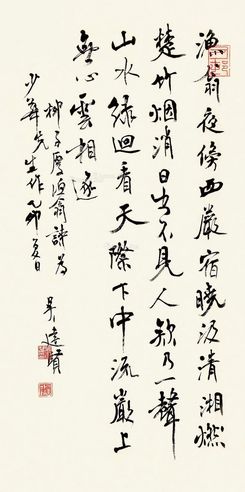 漁翁夜傍西巖宿曉汲清湘燃
楚竹烟消日出不見人欸乃一聲
山水緑迴看天際下中流巖上
無心雲相逐
柳子厚漁翁詩為
少華先生作乙卯夏日
吴建賢